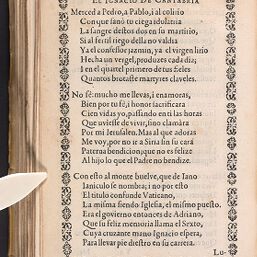 EL IGNACIO DE CANTABRIA
Merced a Pedro, a Pablo, i al colirio
Con que sanó tu ciega idolatria
La sangre destos dos en su martirio,
Si al fertil riego della no valdia
Ya el confessor jazmin, ya el virgen lirio
Hecha un vergel, produzes cada dia;
I en el quartel primero de tus fieles
Quantos brotaste martyres claveles.
No fè: mucho me llevas, i enamoras,
Bien por tu fè, i honor sacrificara
Cien vidas yo, passando en ti las horas
Que uviesse de vivir, sino clamára
Por mi Jerusalen. Mas al que adoras
Me voy, por no ir a Siria sin su cara
Paterna bendicion; que no es felize
Al hijo lo que el Padre no bendize.
Con esto al monte buelve, que de Iano
Ianiculo se nombra; i no por esto
El titulo confunde Vaticano,
La misma siendo Iglesia, el mismo puesto.
Era el govierno entonces de Adriano,
Que su feliz memoria llama el Sexto,
Cuya cruzante mano Ignacio espera,
Para llevar pie diestro en su carrera.
Lu-